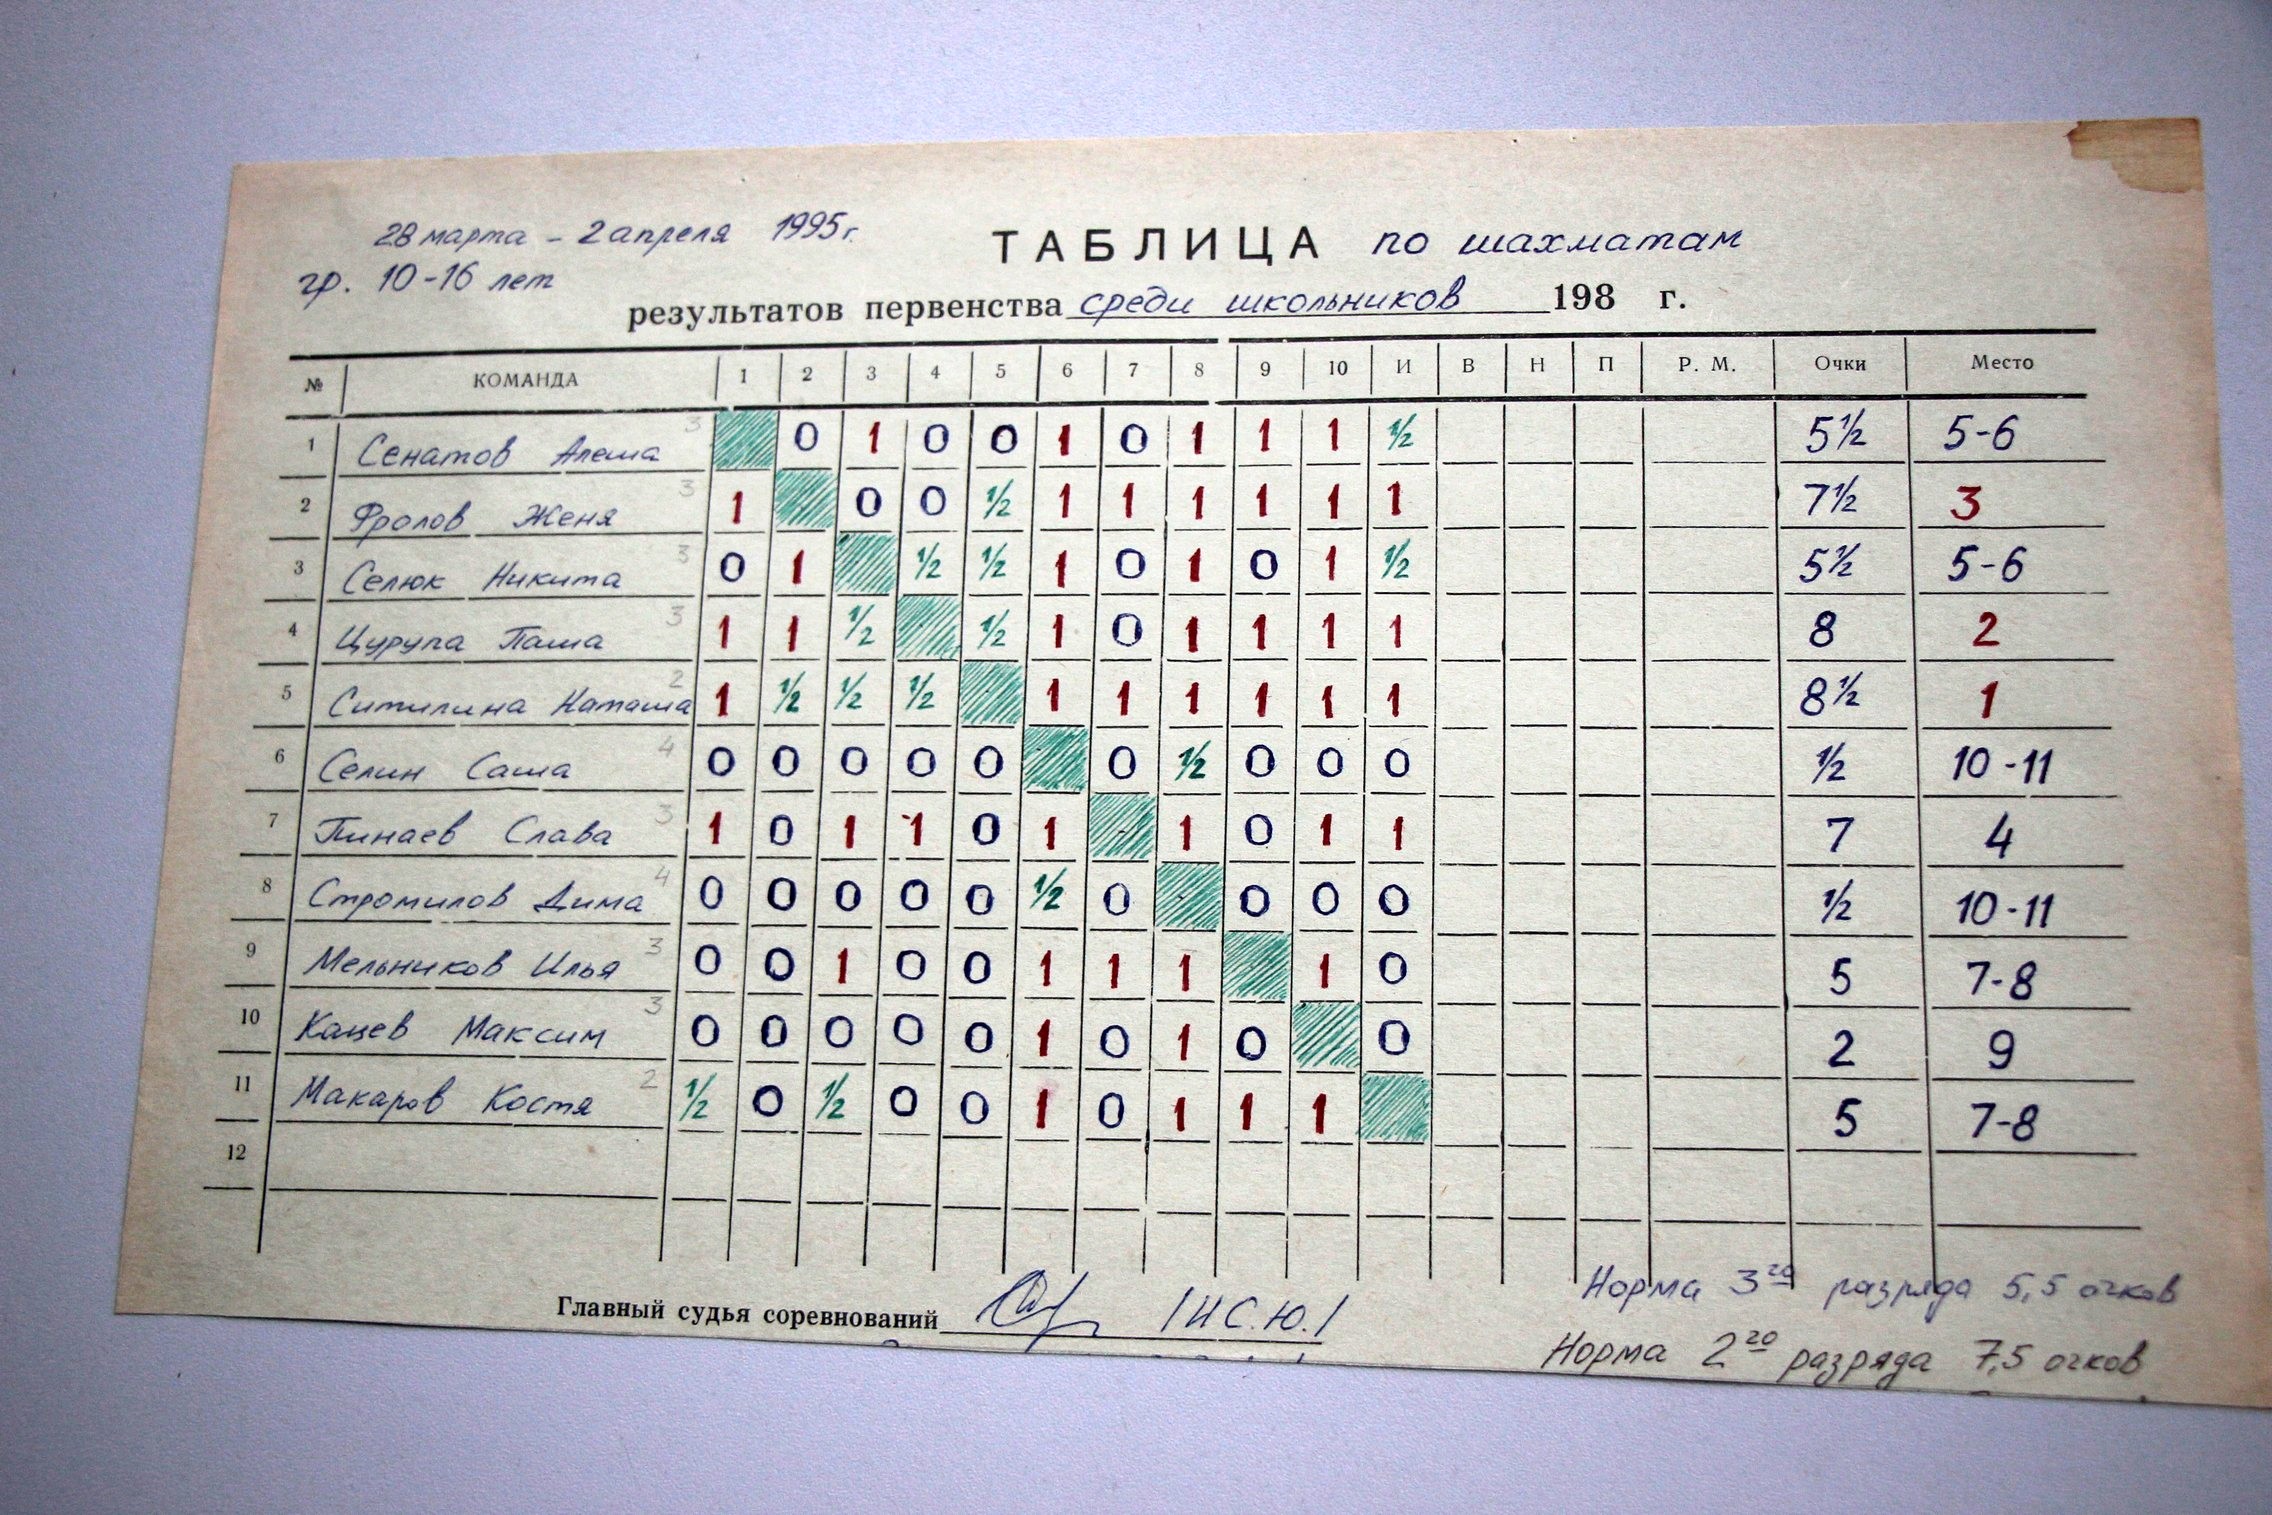 28 марта - 2 апреля 1995г.
ТАБЛИЦА по шахматам
гр. 10-16 лет
результатов первенства среди школьников 198 г.
№ КОМАНДА 1 2 3 4 5 6 7 8 9 10 И В Н П Р. М. Очки Место
1 Сенатов Алеша 3 0 1 0 0 1 0 1 1 1 ½ 5½ 5-6
2 Фролов Женя 3 1 0 0 ½ 1 1 1 1 1 1 7½ 3
3 Селюк Никита 3 0 1 ½ ½ 1 0 1 0 1 ½ 5½ 5-6
4 Цурупа Паша 3 1 1 ½ ½ 1 0 1 1 1 1 8 2
5 Ситилина Наташа 2 1 ½ ½ ½ 1 1 1 1 1 1 8½ 1
6 Селин Саша 4 0 0 0 0 0 0 ½ 0 0 0 ½ 10-11
7 Пинаев Слава 3 1 0 1 1 0 1 1 0 1 1 7 4
8 Стромилов Дима 4 0 0 0 0 0 ½ 0 0 0 0 ½ 10-11
9 Мельников Илья 3 0 0 1 0 0 1 1 1 1 0 5 7-8
10 Кацев Максим 3 0 0 0 0 0 1 0 1 0 0 2 9
11 Макаров Костя 2 ½ 0 ½ 0 0 1 0 1 1 1 5 7-8
12
Главный судья соревнований /И С.Ю./
Норма 3го разряда 5,5 очков
Норма 2го разряда 7,5 очков